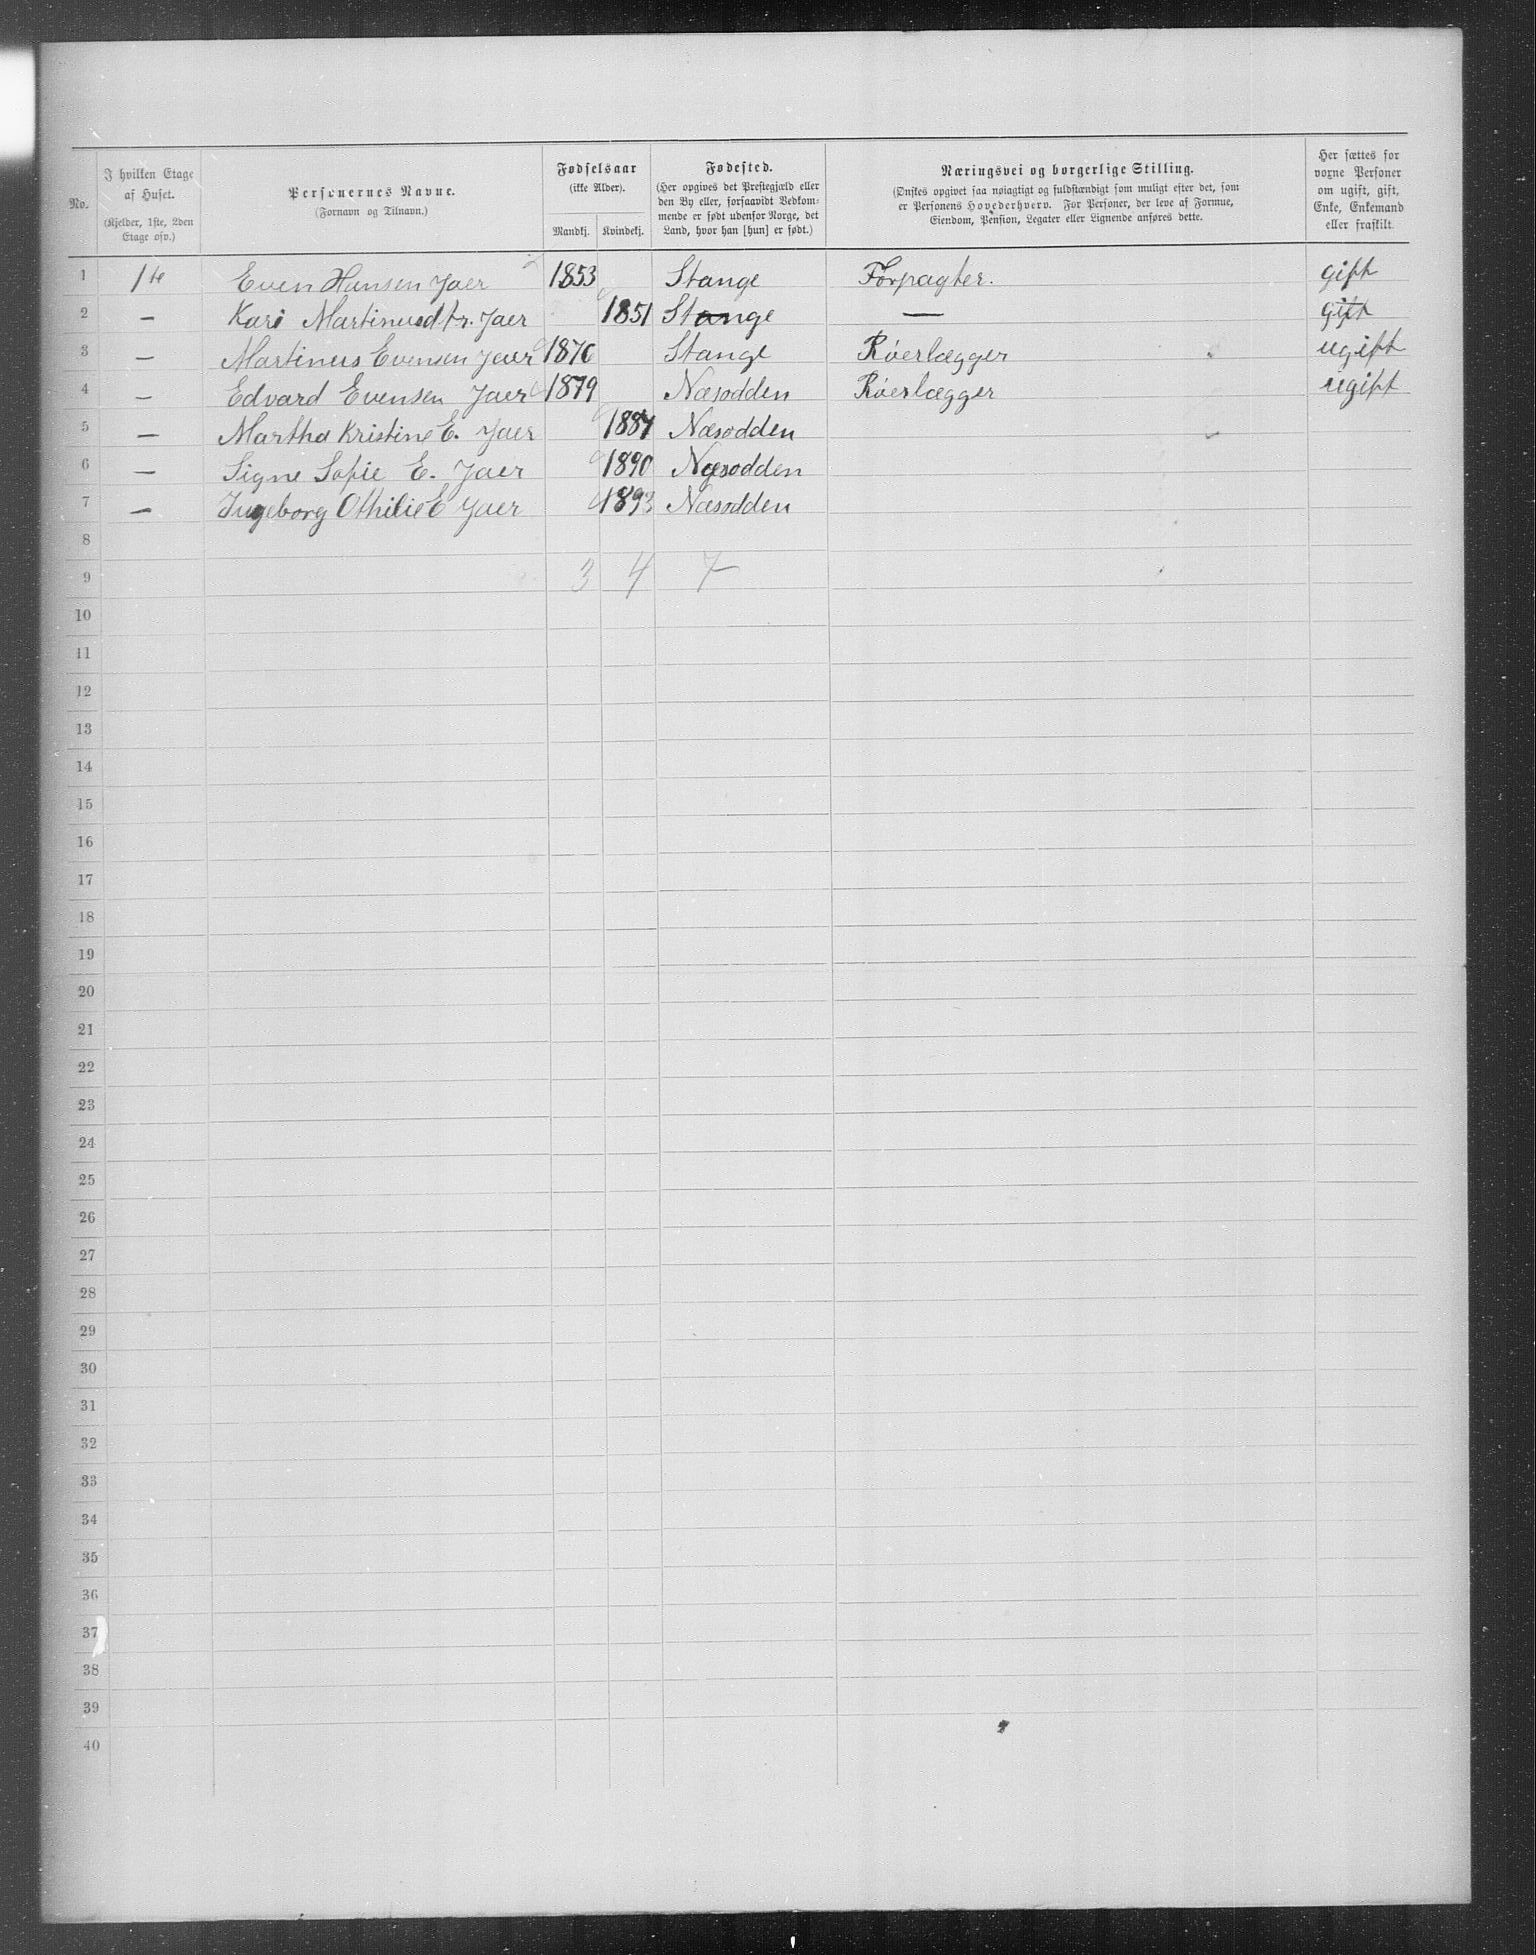 No.
I hvilken Etage af Huset. (Kjelder, 1ste, 2den Etage osv.)
Personernes Navne. (Fornavn og Tilnavn.)
Fødselsaar (ikke Alder).
Mandkj. Kvindekj.
Fødested. (Her opgives det Præstegjæld eller den By eller, forsaavidt Vedkommende er født udenfor Norge, det Land, hvor han [hun] er født.)
Næringsvei og borgerlige Stilling. (Ønskes opgivet saa nøiagtigt og fuldstændigt som muligt efter det, som er Personens Hovederhverv. For Personer, der leve af Formue, Eiendom, Pension, Legater eller Lignende anføres dette.
Her sættes for voxne Personer om ugift, gift, Enke, Enkemand eller fraskilt.
1 1ste Even Hansen Jaer 1853 Stange Forpagter. gift
2 — Kari Martinusdtr. Jaer 1851 Stange — gift
3 — Martinus Evensen Jaer 1876 Stange Røerlægger ugift
4 — Edvard Evensen Jaer 1879 Næsodden Røerlægger ugift
5 — Martha Kristine E. Jaer 1887 Næsodden
6 — Signe Sofie E. Jaer 1890 Næsodden
7 — Ingeborg Othilie E Jaer 1893 Næsodden
8
9 3 4 7
10
11
12
13
14
15
16
17
18
19
20
21
22
23
24
25
26
27
28
29
30
31
32
33
34
35
36
37
38
39
40